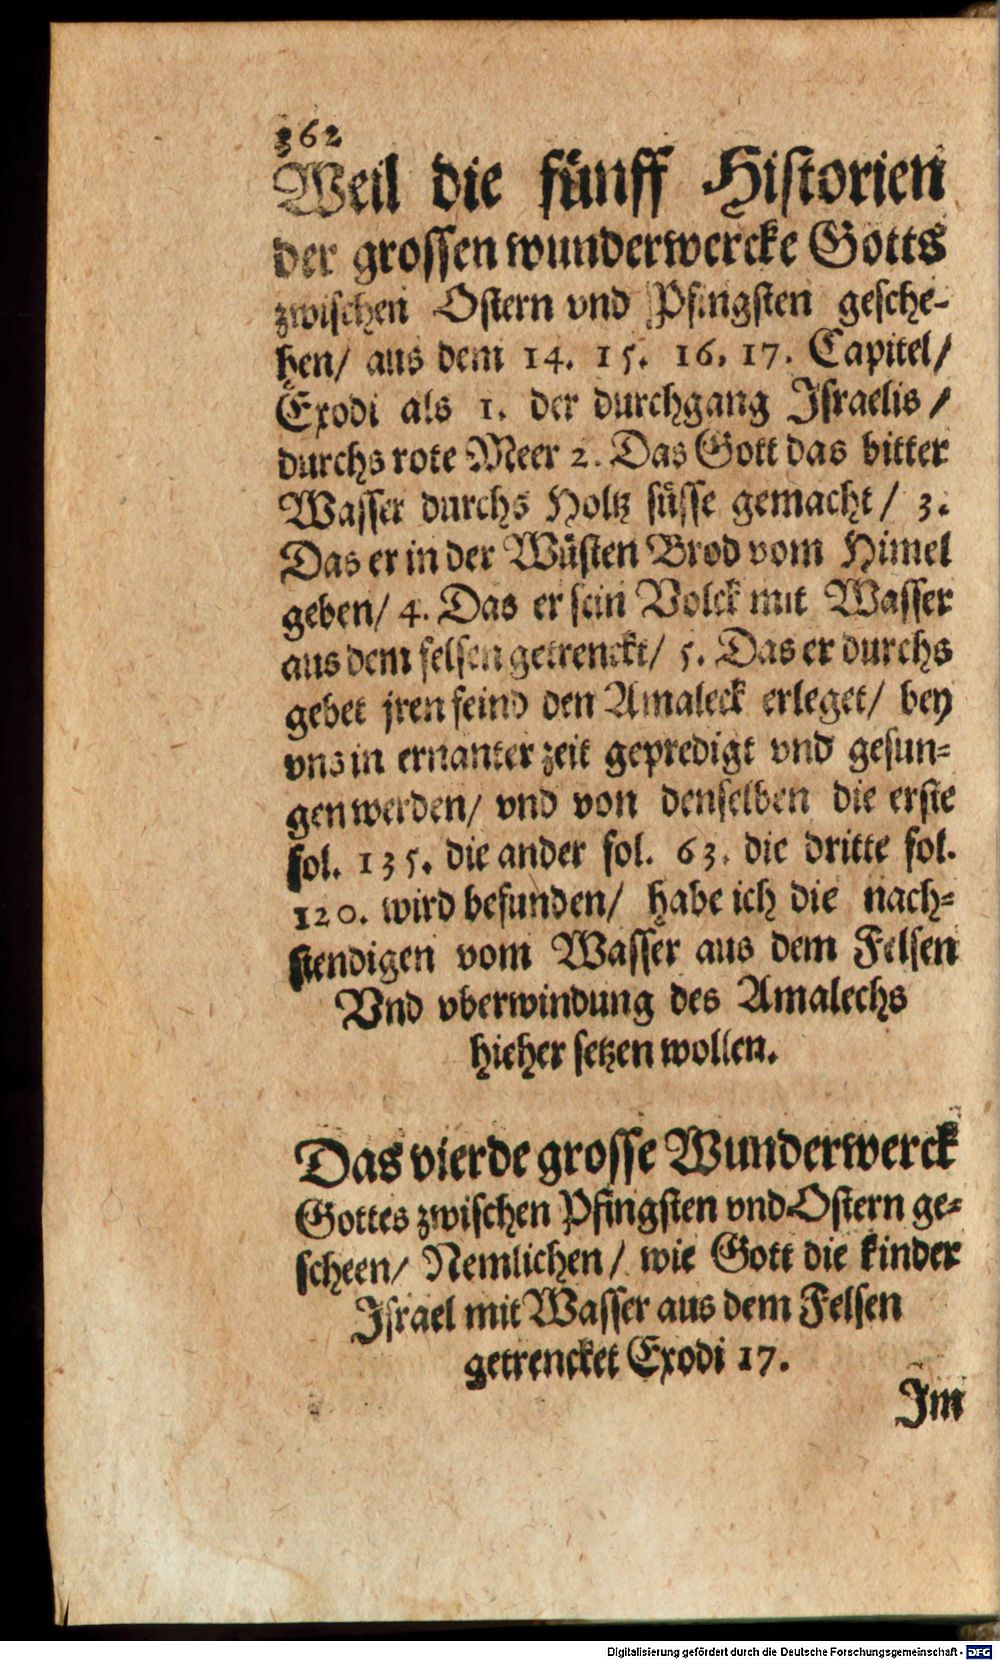 362
Weil die fünff Historien
der grossen wunderwercke Gotts
zwischen Ostern vnd Pfingsten gesche-
hen/ aus dem 14. 15. 16. 17. Capitel/
Exodi als 1. der durchgang Israelis/
durchs rote Meer 2. Das Gott das bitter
Wasser durchs Holtz süsse gemacht/ 3.
Das er in der Wüsten Brod vom Himel
geben/ 4. Das er sein Volck mit Wasser
aus dem felsen getrenckt/ 5. Das er durchs
gebet jren feind den Amaleck erleget/ bey
vns in ernanter zeit gepredigt vnd gesun-
gen werden/ vnd von denselben die erste
fol. 135. die ander fol. 63. die dritte fol.
120. wird befunden/ habe ich die nach-
stendigen vom Wasser aus dem Felsen
Vnd vberwindung des Amalechs
hieher setzen wollen.
Das vierde grosse Wunderwerck
Gottes zwischen Pfingsten vnd Ostern ge-
scheen/ Nemlichen/ wie Gott die kinder
Israel mit Wasser aus dem Felsen
getrencket Exodi 17.
Im
Digitalisierung gefördert durch die Deutsche Forschungsgemeinschaft - DFG